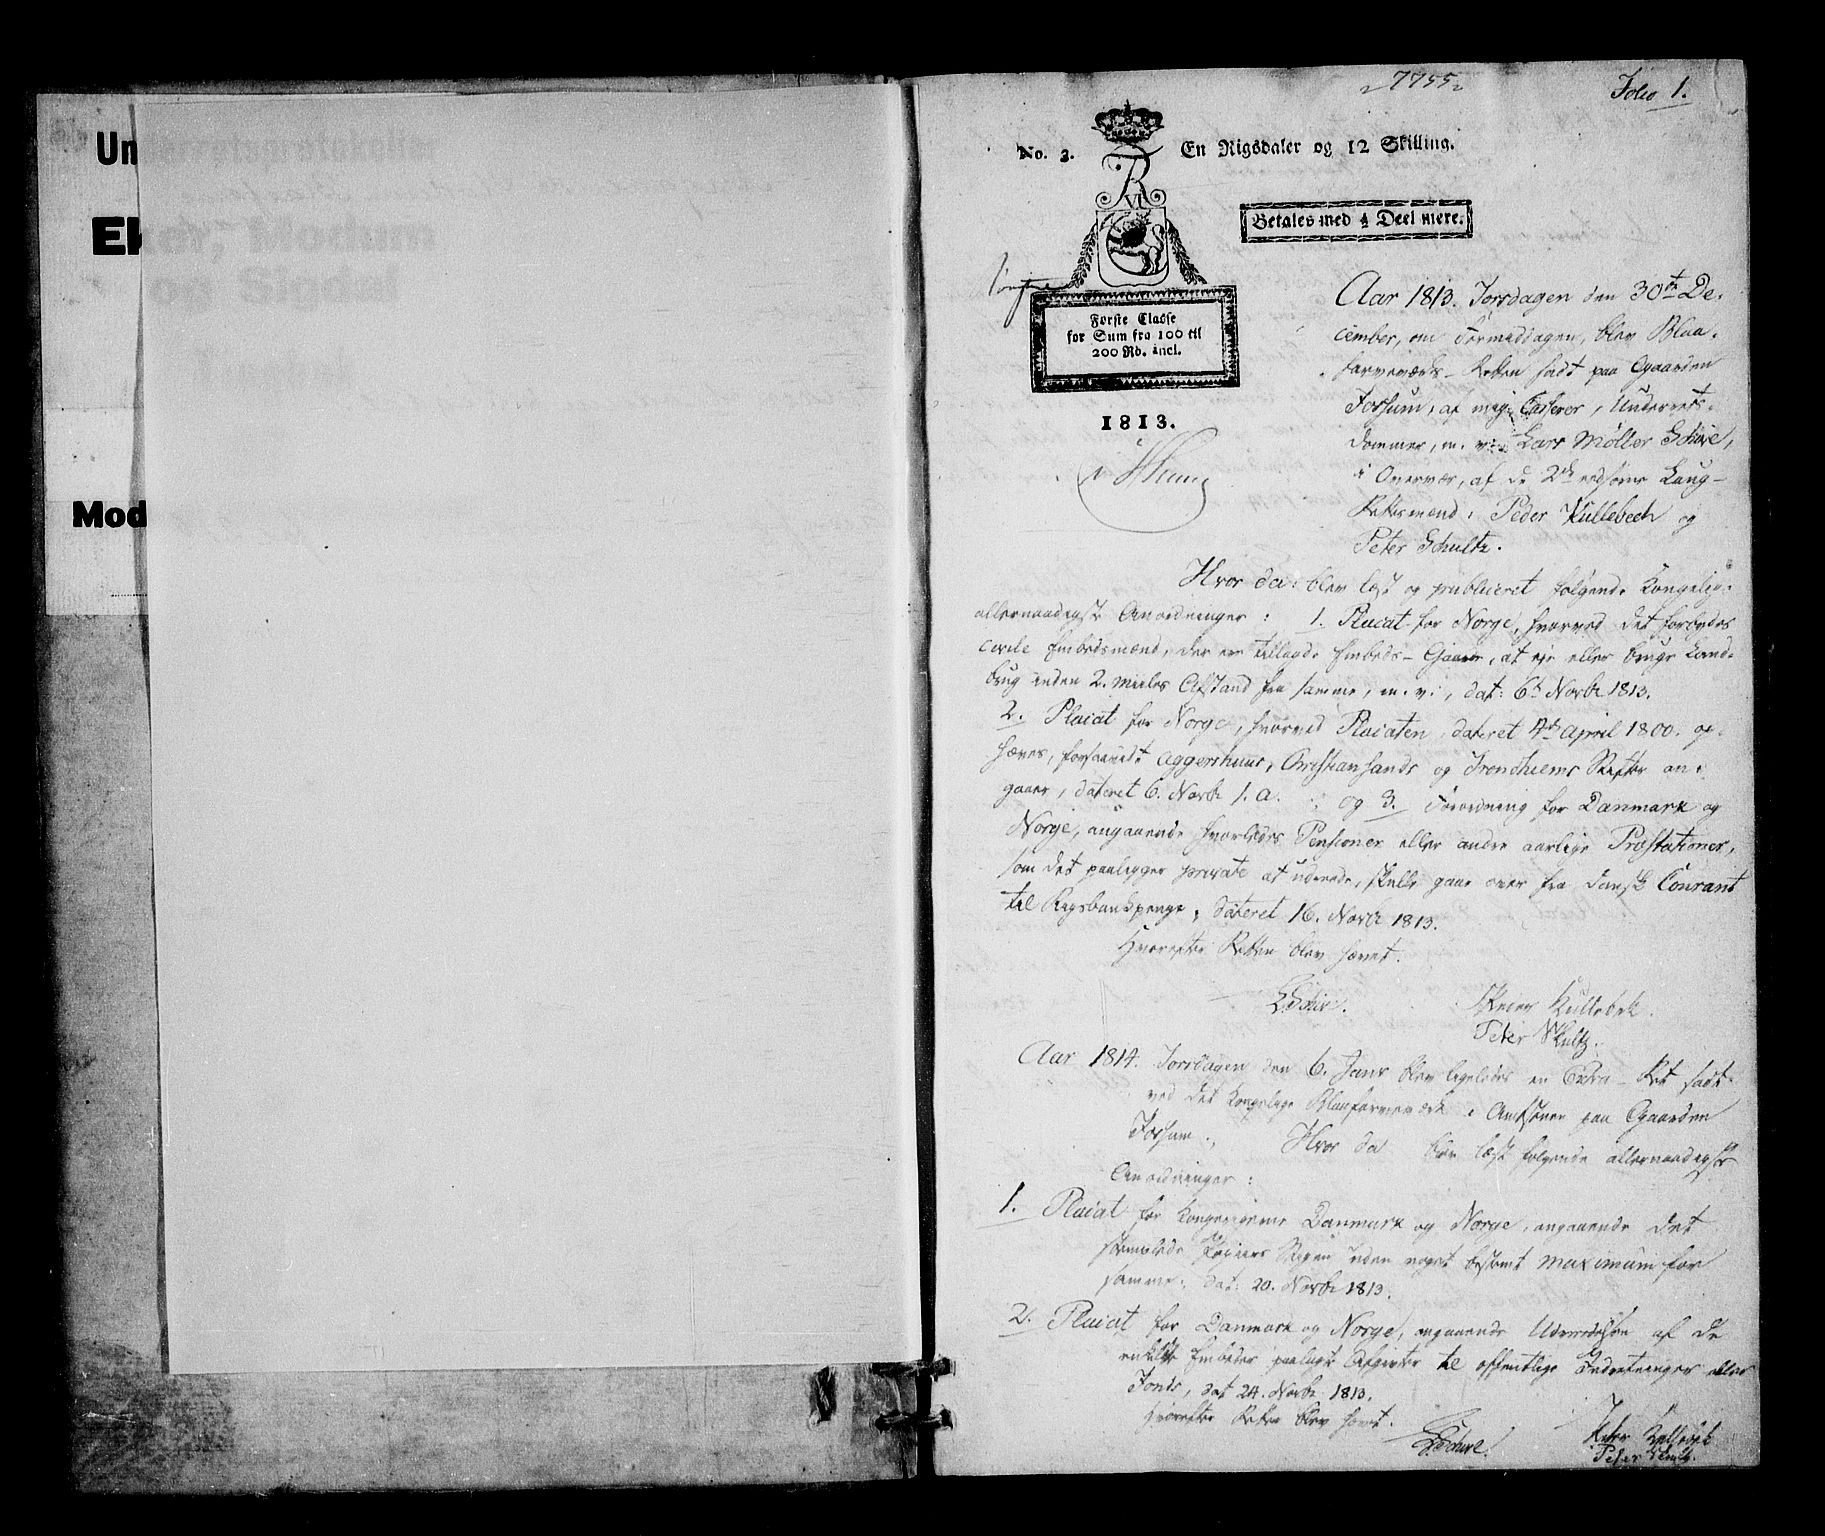 Un
Ek
Mod
7755
Folio 1.
No. 3. En Rigsdaler og 12 Skilling.
Betales med ½ Deel mere.
Første Classe
for Sum fra 100 til
200 Rd. incl.
1813.
Aar 1813. Torsdagen den 30te De-
cember, om Formiddagen, blev Blaa-
farveværks-Retten sadt paa Gaarden
Fossum, af mig Casserer, Underrets-
dommer, m. v. Lars Møller Schive,
i Overvær, af de 2de edsorne Laug-
Rettesmænd: Peder Kullebech og
Peter Schultz.
Hvor da: blev læst og publiceret følgende Kongelig-
allernaadigst Anordninger: 1. Placat for Norge, hvorved det forbydes
civile Embedsmænd, der ere tillagde Embeds-Gaarde, at eje eller bruge Land-
brug inden 2. Miiles Afstand fra samme, m. v., dat: 6te Novbr 1813.
2. Placat for Norge, hvorved Placaten, dateret 4de April 1800. op-
hæves, forsaavidt Aggershuus, Christiansands og Trondhiems Stifter an-
gaaer, dateret 6. Novbr 1. a. ; og 3. Forordning for Danmark og
Norge, angaaende hvorledes Pensioner eller andre aarlige Præstationer,
som det paaligger private at udrede, skulle gaae over fra dansk Courant
til Rigsbankpenge, dateret 16. Novbr 1813.
Hvorefter Retten blev hævet.
LSchive.
Peder Kullebek.
Peter Skultz.
Aar 1814. Torsdagen den 6. Janr blev ligeledes en Extra-Ret sadt
ved det Kongelige Blaafarveværk i Amtstuen paa Gaarden
Fossum. Hvor da blev læst følgende allernaadigste
Anordninger:
1. Placat for Kongerigerne Danmark og Norge, angaaende det
stemplede Papiirs Stigen uden noget bestemt Maximum for
samme: dat: 20. Novbr 1813.
2. Placat for Danmark og Norge, angaaende Udredelsen af de
enkelte Embeder paalagte Afgivter til offentlige Indretninger eller
Fonds, dat 24. Novbr 1813.
Hvorefter Retten blev hævet.
LSchive.
Peder Kullebek
Peter Skultz.